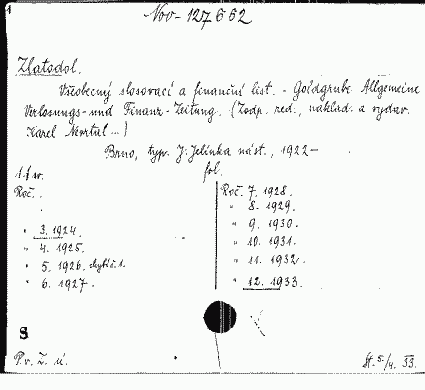 1
Nov - 127662
Zlatodol.
Všeobecný slosovací a finanční list. - Goldgrube Allgemeine
Verlosungs- und Finanz-Zeitung. (Zodp. red., naklad. a vydav.
Karel Nevrtal ...)
Brno, typ. J. Jelínka nást., 1922-
fol.
Roč.
" 3. 1924.
" 4. 1925.
" 5. 1926. chybí č. 1.
" 6. 1927.
Roč. 7. 1928.
" 8. 1929.
" 9. 1930.
" 10. 1931.
" 11. 1932.
" 12. 1933.
S
P. v. Z. ú.
St. 5/4. 33.